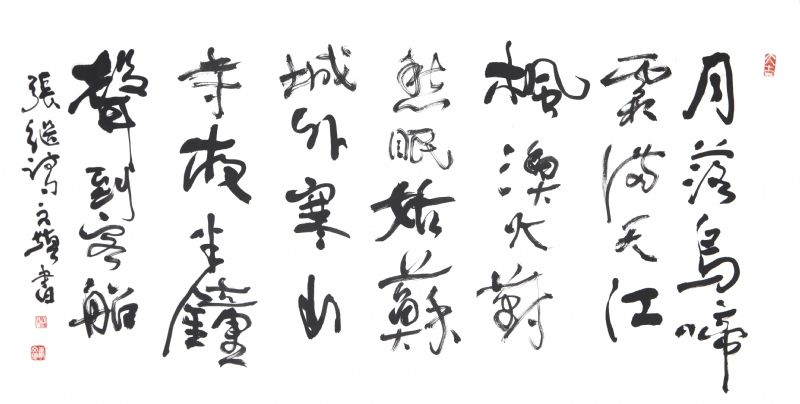 月落烏啼
霜滿天江
楓漁火對
愁眠姑蘇
城外寒山
寺夜半鐘
聲到客船
張继詩 文書